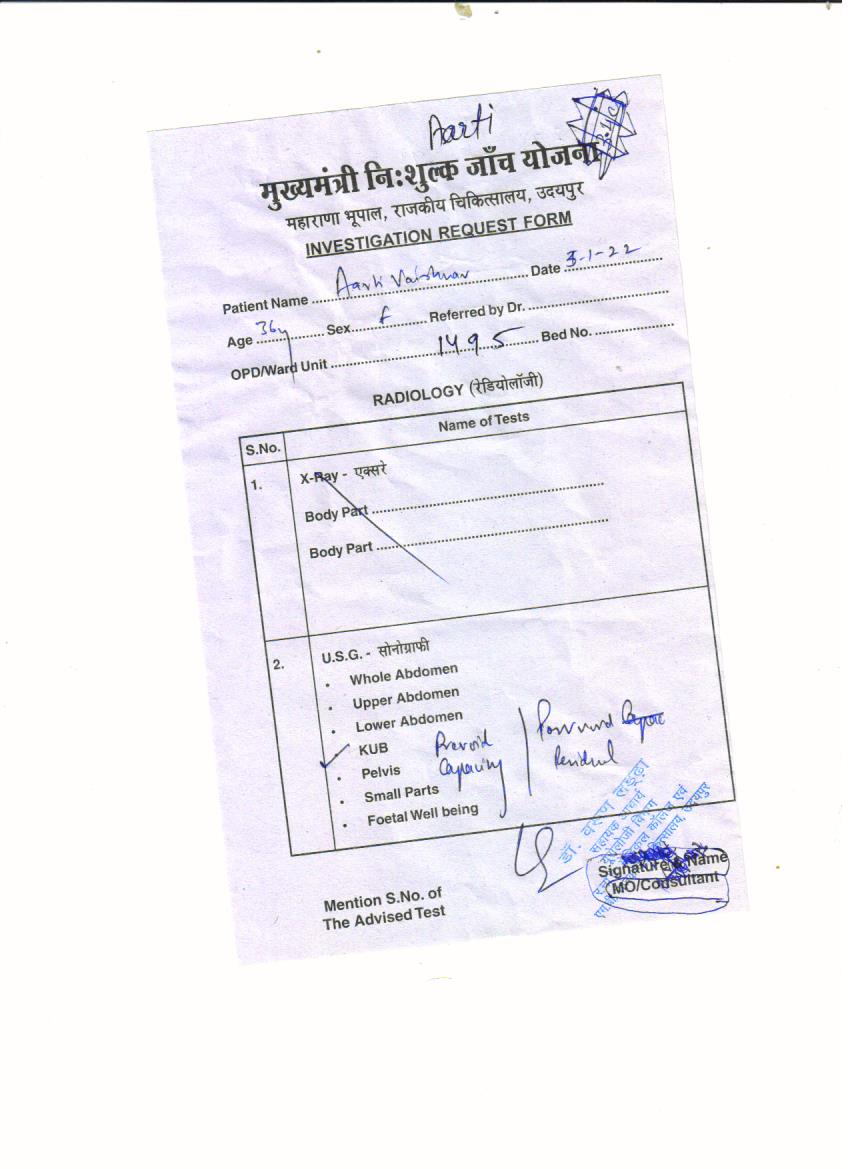 Aarti
मुख्यमंत्री निःशुल्क जाँच योजना
महाराणा भूपाल, राजकीय चिकित्सालय, उदयपुर
INVESTIGATION REQUEST FORM
Patient Name Aarti Vaishnav Date 3-1-22
Age 36y Sex f Referred by Dr.
OPD/Ward Unit 1495 Bed No.
RADIOLOGY (रेडियोलॉजी)
S.No. Name of Tests
1. X-Ray - एक्सरे
Body Part
Body Part
2. U.S.G. - सोनोग्राफी
• Whole Abdomen
• Upper Abdomen
• Lower Abdomen
• KUB Prevoid
• Pelvis Capacity Residual
• Small Parts
• Foetal Well being
डॉ.
सहायक आचार्य
यूरोलोजी विभाग
Signature & Name
MO/Consultant
Mention S.No. of
The Advised Test